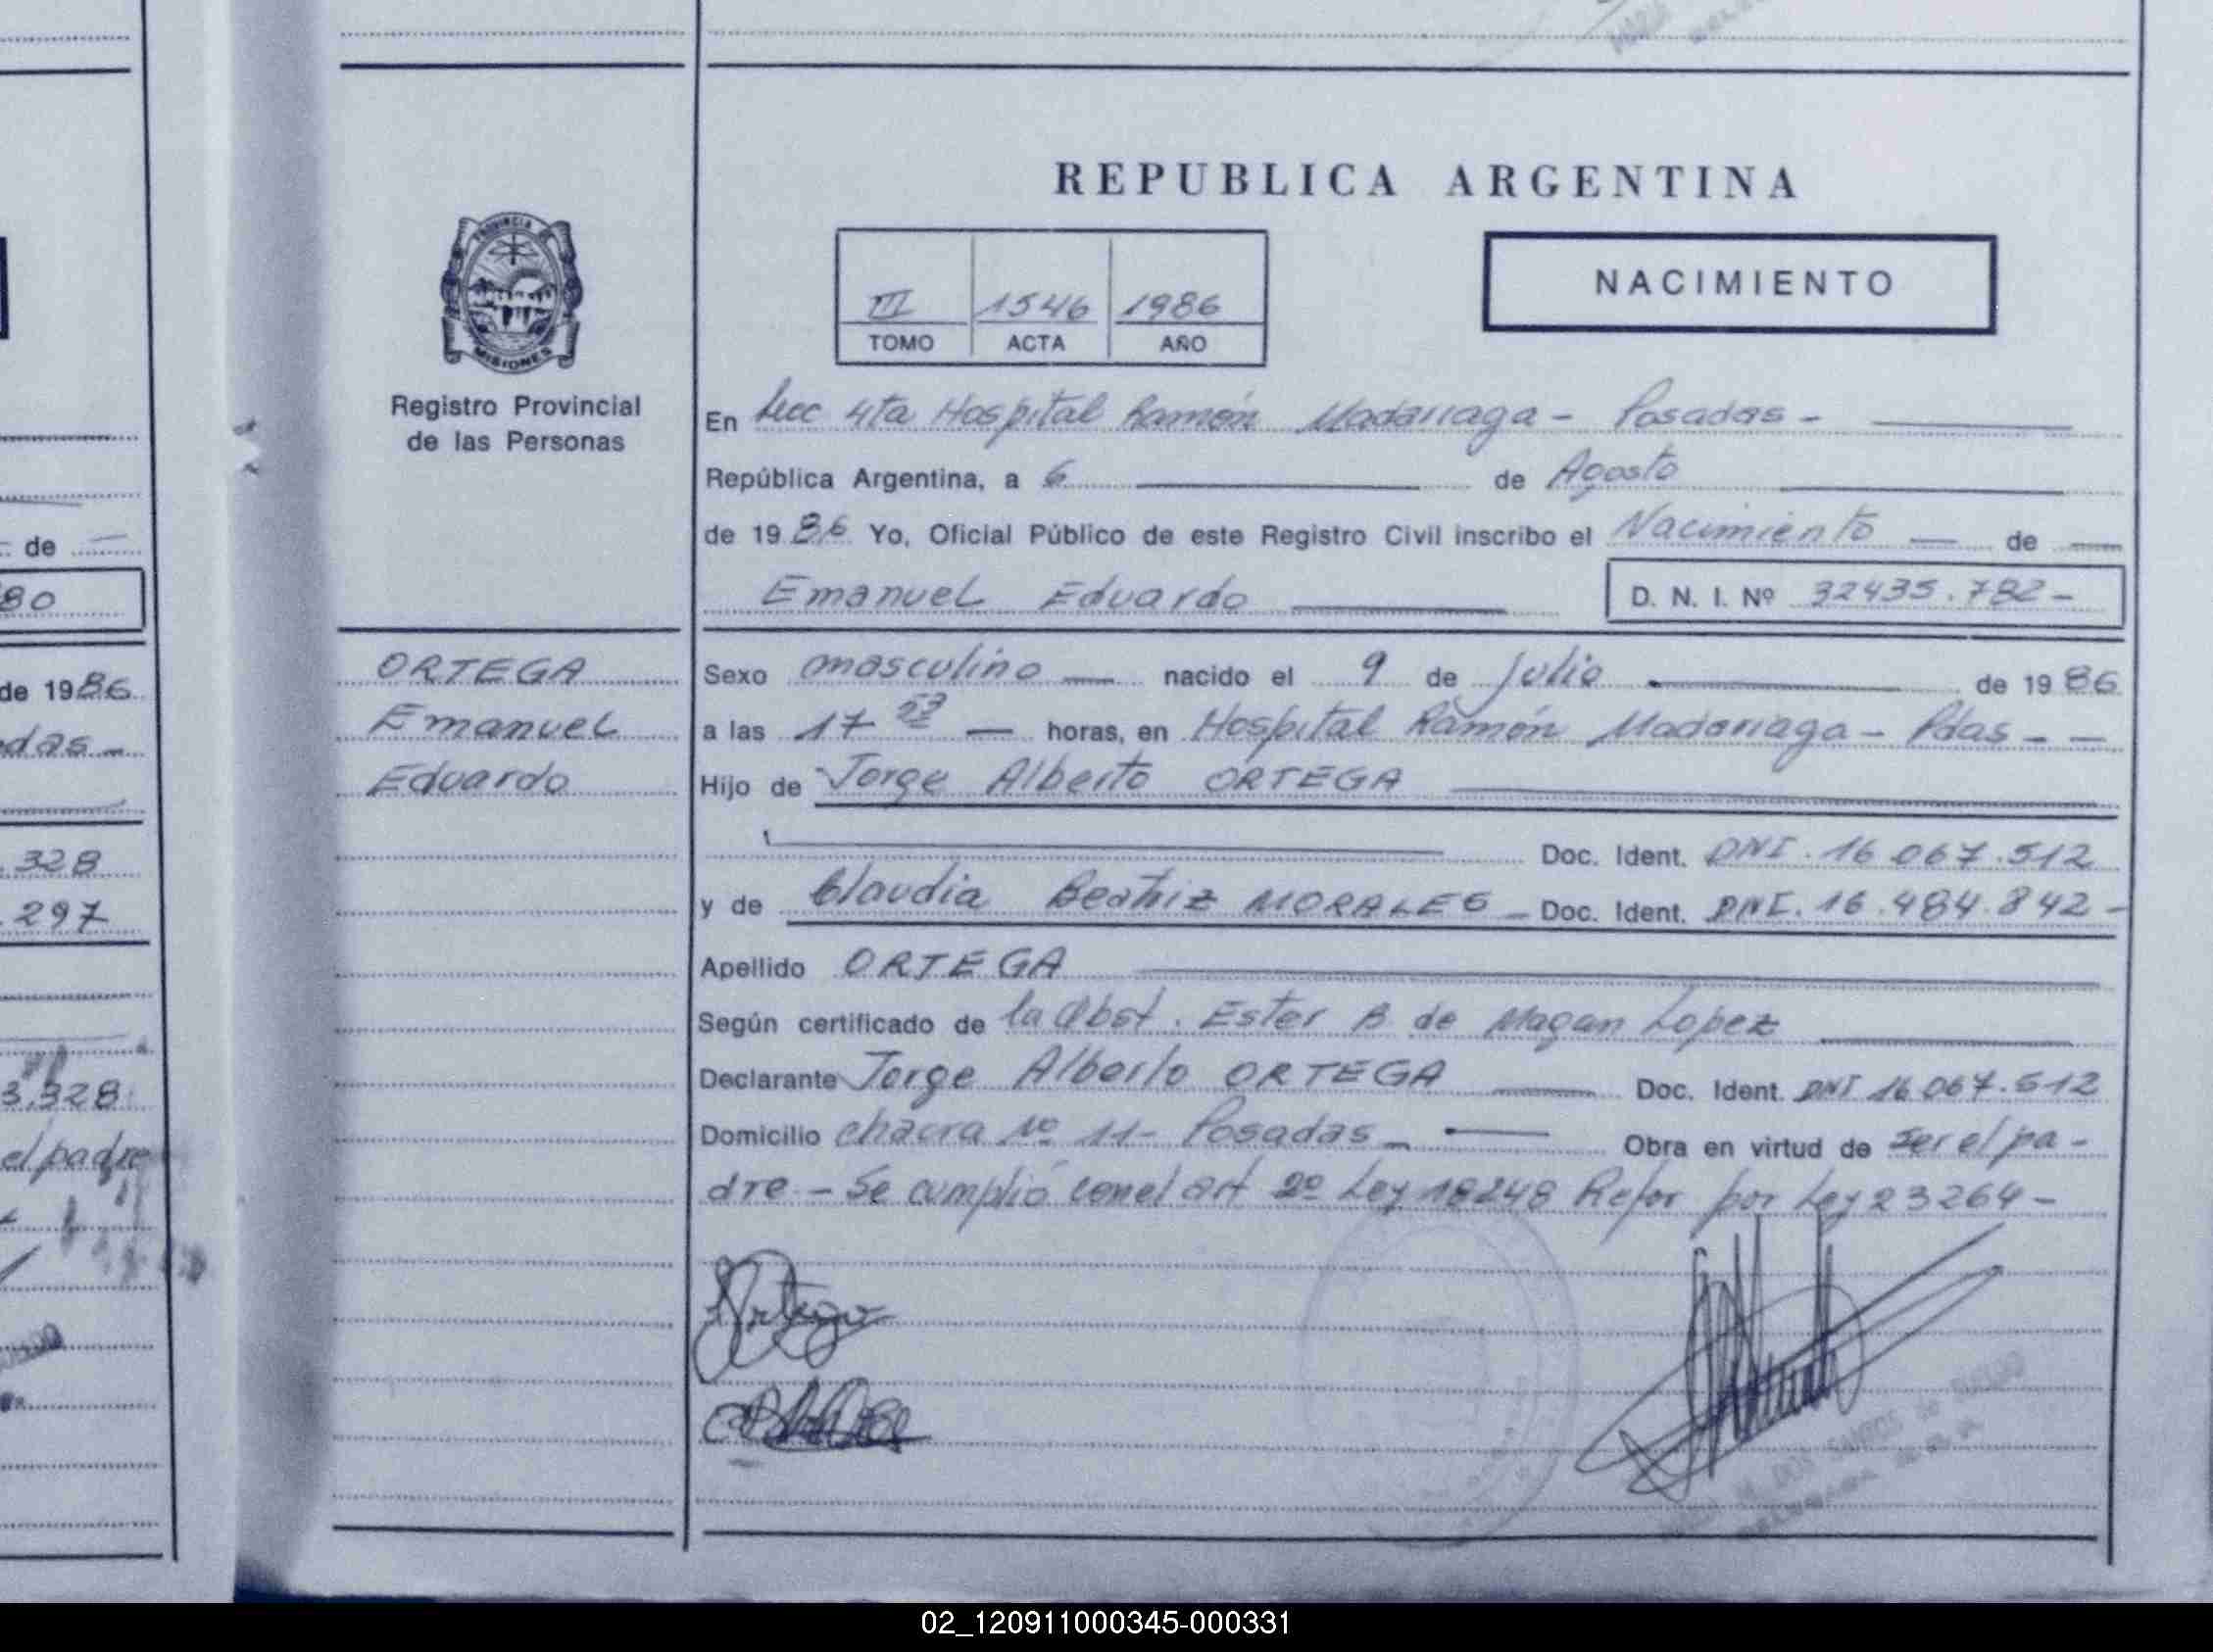 REPUBLICA ARGENTINA
PROVINCIA DE
MISIONES
Registro Provincial
de las Personas
III 1546 1986
TOMO ACTA AÑO
NACIMIENTO
En Secc 4ta Hospital Ramón Madariaga - Posadas -
República Argentina, a 6 de Agosto
de 1986 Yo, Oficial Público de este Registro Civil inscribo el Nacimiento de
Emanuel Eduardo D. N. I. Nº 32435.782-
ORTEGA
Emanuel
Eduardo
Sexo masculino nacido el 9 de julio de 1986
a las 17 53 horas, en Hospital Ramón Madariaga - Pdas - -
Hijo de Jorge Alberto ORTEGA
Doc. Ident. DNI. 16 067.512
y de Claudia Beatriz MORALES - Doc. Ident. DNI. 16.484.842 -
Apellido ORTEGA
Según certificado de la Obst. Ester B. de Magan Lopez
Declarante Jorge Alberto ORTEGA Doc. Ident. DNI 16 067.512
Domicilio chacra Nº 11- Posadas - Obra en virtud de ser el pa-
dre - Se cumplió con el art 2º Ley 18248 Refor por Ley 23264 -
Ortega
DOS SANTOS de
de
80
de 1986
das -
.328
.297
3.328
el padre
02_120911000345-000331